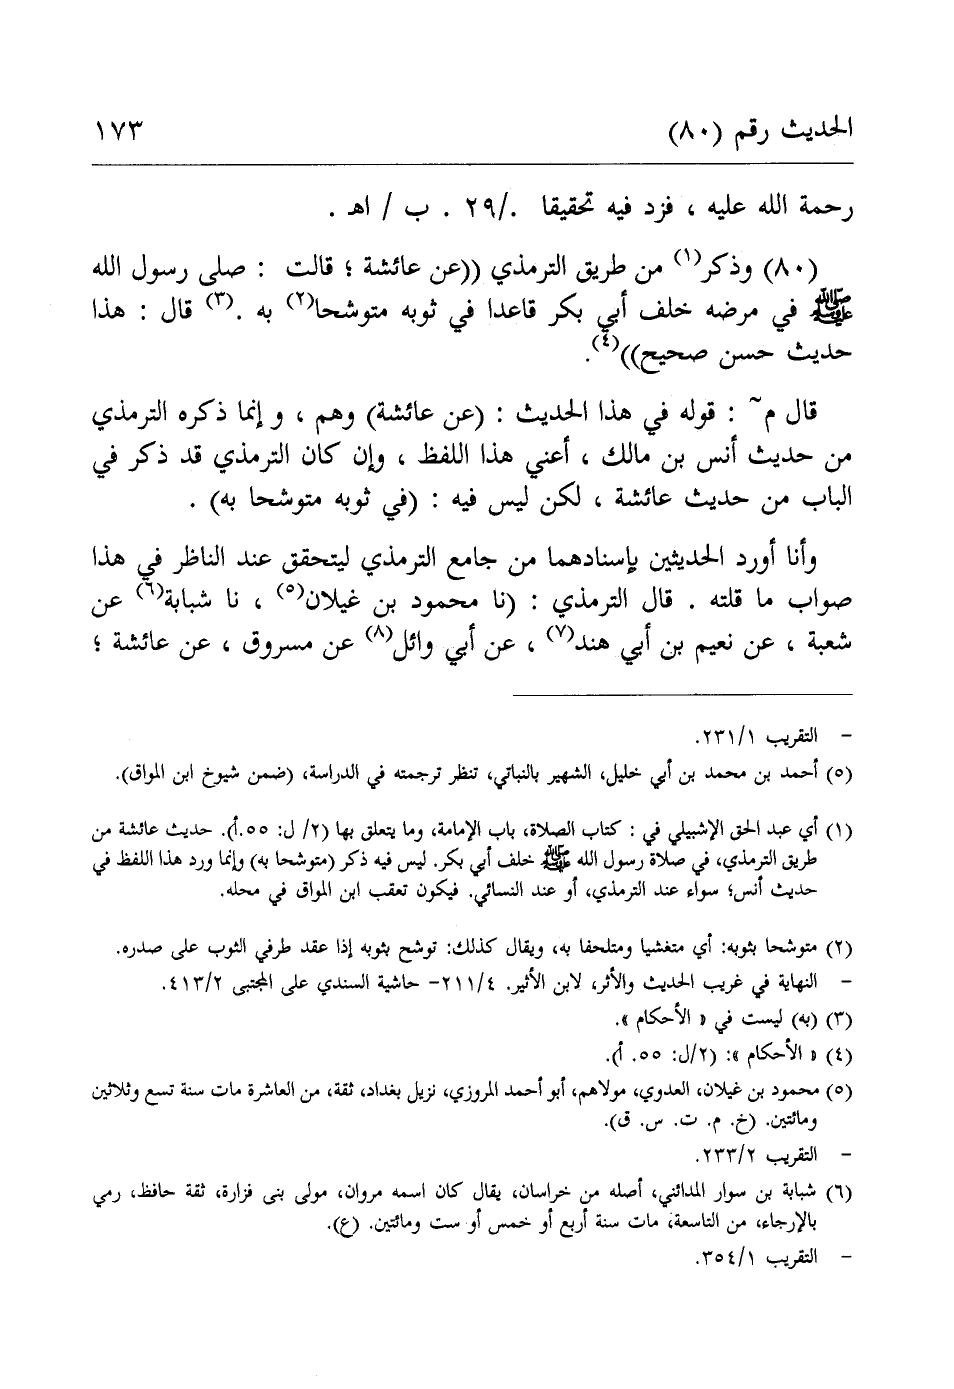 الحديث رقم (٨٠) ١٧٣
رحمة الله عليه ، فزد فيه تحقيقا ./٢٩ . ب / اهـ .
(٨٠) وذكر(١) من طريق الترمذي ((عن عائشة ؛ قالت : صلى رسول الله
ﷺ في مرضه خلف أبي بكر قاعدا في ثوبه متوشحا(٢) به .(٣) قال : هذا
حديث حسن صحيح))(٤).
قال م~ : قوله في هذا الحديث : (عن عائشة) وهم ، و إنما ذكره الترمذي
من حديث أنس بن مالك ، أعني هذا اللفظ ، وإن كان الترمذي قد ذكر في
الباب من حديث عائشة ، لكن ليس فيه : (في ثوبه متوشحا به) .
وأنا أورد الحديثين بإسنادهما من جامع الترمذي ليتحقق عند الناظر في هذا
صواب ما قلته . قال الترمذي : (نا محمود بن غيلان(٥) ، نا شبابة(٦) عن
شعبة ، عن نعيم بن أبي هند(٧) ، عن أبي وائل(٨) عن مسروق ، عن عائشة ؛
- التقريب ٢٣١/١.
(٥) أحمد بن محمد بن أبي خليل، الشهير بالنباتي، تنظر ترجمته في الدراسة، (ضمن شيوخ ابن المواق).
(١) أي عبد الحق الإشبيلي في : كتاب الصلاة، باب الإمامة، وما يتعلق بها (٢/ ل: ٥٥.أ). حديث عائشة من
طريق الترمذي، في صلاة رسول الله ﷺ خلف أبي بكر. ليس فيه ذكر (متوشحا به) وإنما ورد هذا اللفظ في
حديث أنس؛ سواء عند الترمذي، أو عند النسائي. فيكون تعقب ابن المواق في محله.
(٢) متوشحا بثوبه: أي متغشيا ومتلحفا به، ويقال كذلك: توشح بثوبه إذا عقد طرفي الثوب على صدره.
- النهاية في غريب الحديث والأثر، لابن الأثير. ٢١١/٤- حاشية السندي على المجتبى ٤١٣/٢.
(٣) (به) ليست في « الأحكام ».
(٤) « الأحكام »: (٢/ل: ٥٥. أ).
(٥) محمود بن غيلان، العدوي، مولاهم، أبو أحمد المروزي، نزيل بغداد، ثقة، من العاشرة مات سنة تسع وثلاثين
ومائتين. (خ. م. ت. س. ق).
- التقريب ٢٣٣/٢.
(٦) شبابة بن سوار المدائني، أصله من خراسان، يقال كان اسمه مروان، مولى بنى فزارة، ثقة حافظ، رمي
بالإرجاء، من التاسعة، مات سنة أربع أو خمس أو ست ومائتين. (ع).
- التقريب ٣٥٤/١.